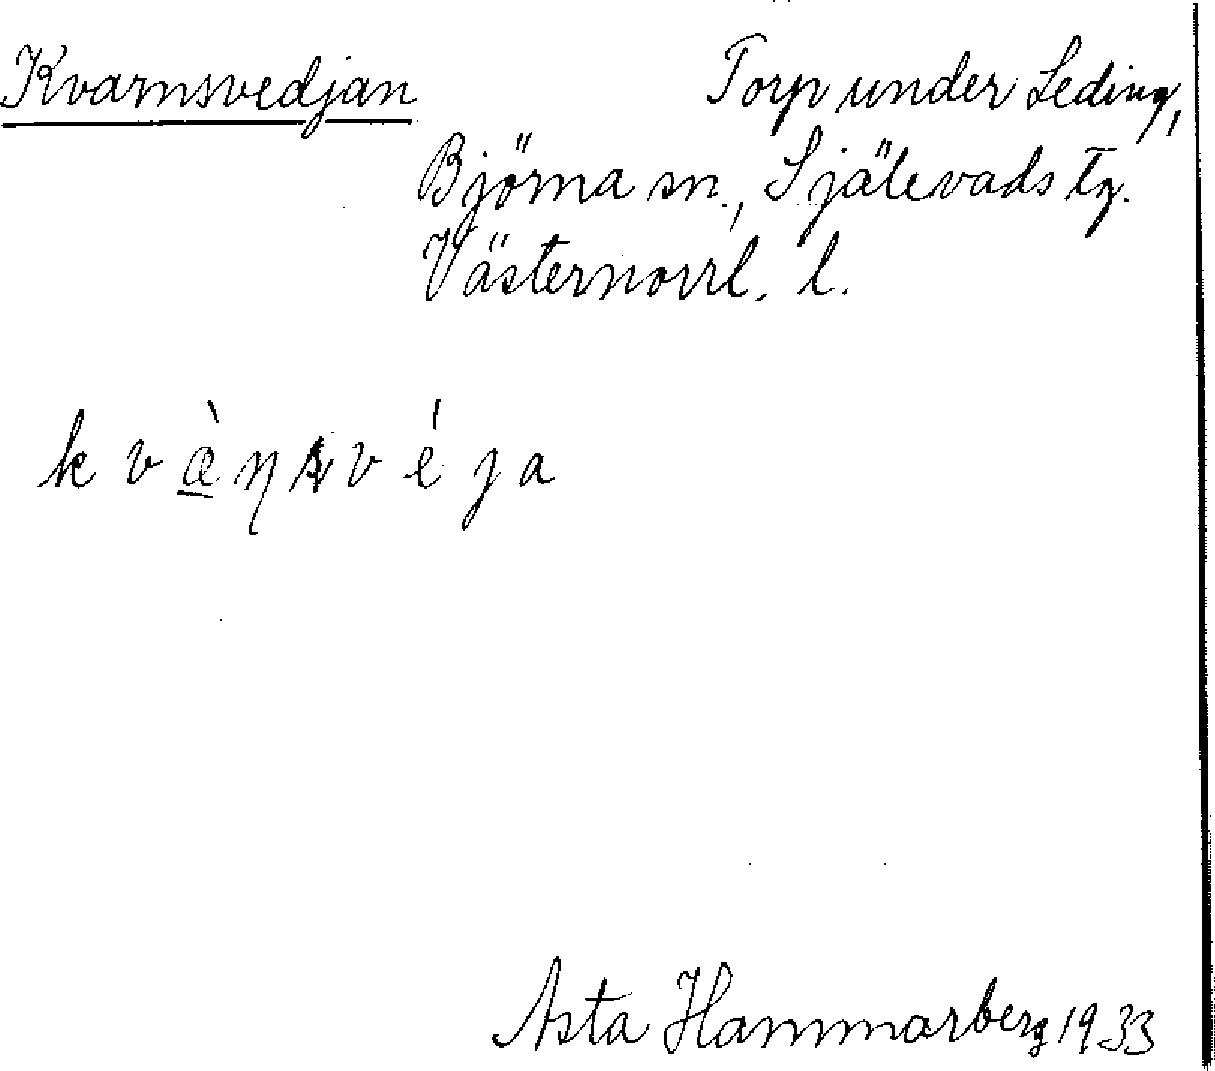 Kvarnsvedjan Torp under Leding,
Björna sn., Själevads tg.
Västernorrl. l.
k v æ̀ ɳ ʂ v é j a
Asta Hammarberg 1933